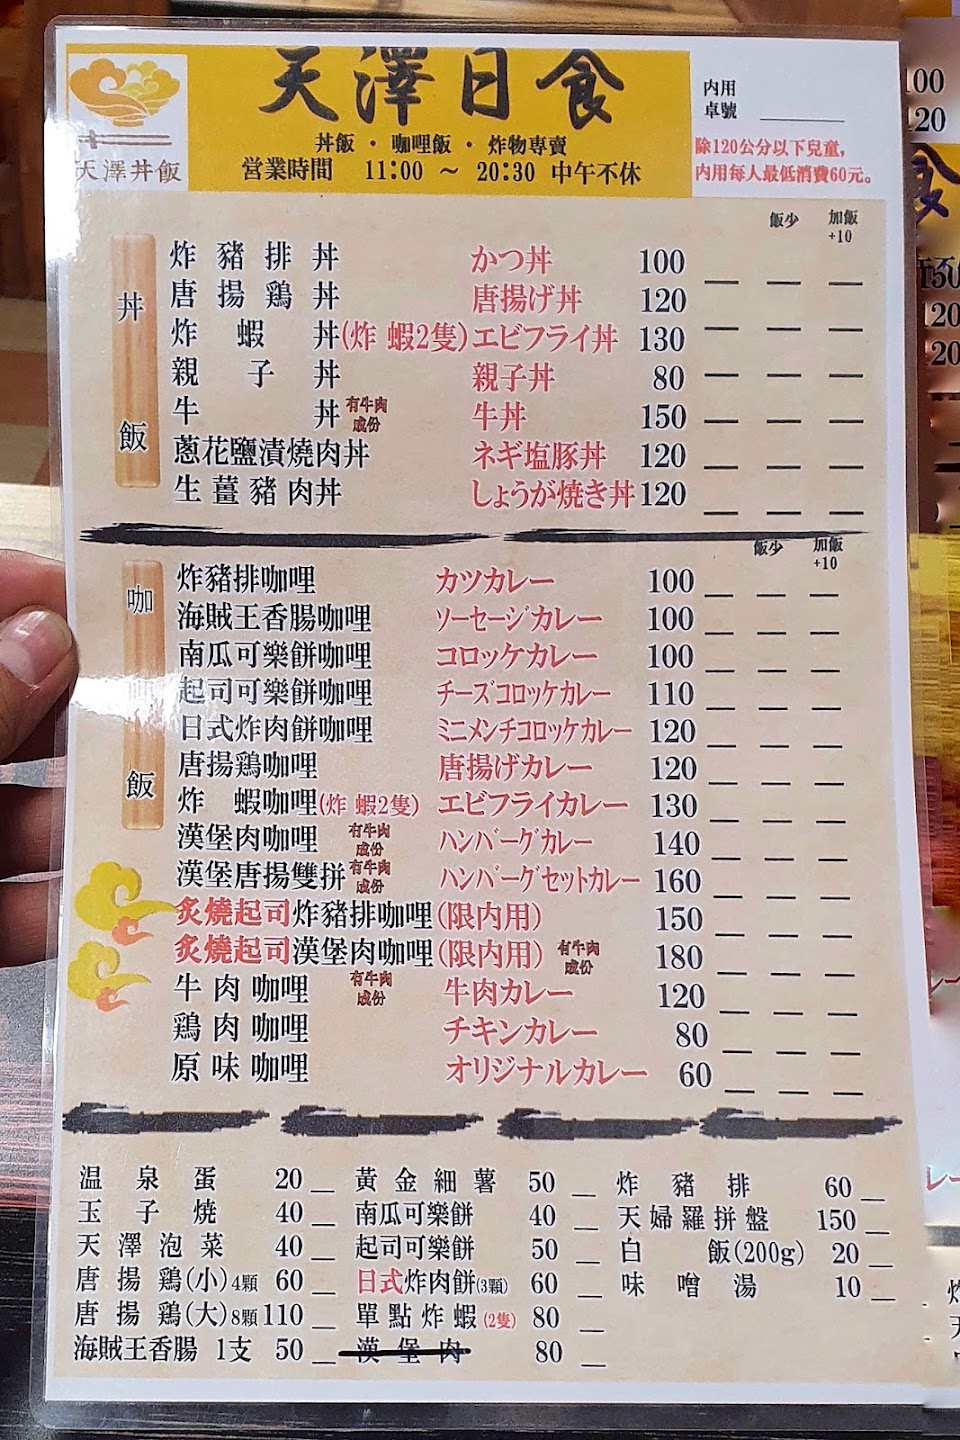 天澤丼飯
天澤日食
丼飯・咖哩飯・炸物專賣
営業時間 11:00 ~ 20:30 中午不休
内用
卓號
除120公分以下兒童,
内用每人最低消費60元。
飯少 加飯
+10
丼飯
炸豬排丼 かつ丼 100
唐揚鶏丼 唐揚げ丼 120
炸蝦丼(炸蝦2隻) エビフライ丼 130
親子丼 親子丼 80
牛丼 有牛肉成份 牛丼 150
蔥花鹽漬燒肉丼 ネギ塩豚丼 120
生薑豬肉丼 しょうが焼き丼 120
飯少 加飯
+10
咖哩飯
炸豬排咖哩 カツカレー 100
海賊王香腸咖哩 ソーセージカレー 100
南瓜可樂餅咖哩 コロッケカレー 100
起司可樂餅咖哩 チーズコロッケカレー 110
日式炸肉餅咖哩 ミニメンチコロッケカレー 120
唐揚鶏咖哩 唐揚げカレー 120
炸蝦咖哩(炸蝦2隻) エビフライカレー 130
漢堡肉咖哩 有牛肉成份 ハンバーグカレー 140
漢堡唐揚雙拼 有牛肉成份 ハンバーグセットカレー 160
炙燒起司炸豬排咖哩(限内用) 150
炙燒起司漢堡肉咖哩(限内用) 有牛肉成份 180
牛肉咖哩 有牛肉成份 牛肉カレー 120
鶏肉咖哩 チキンカレー 80
原味咖哩 オリジナルカレー 60
温泉蛋 20
玉子燒 40
天澤泡菜 40
唐揚鶏(小)4顆 60
唐揚鶏(大)8顆 110
海賊王香腸 1支 50
黃金細薯 50
南瓜可樂餅 40
起司可樂餅 50
日式炸肉餅(3顆) 60
單點炸蝦(2隻) 80
漢堡肉 80
炸豬排 60
天婦羅拼盤 150
白飯(200g) 20
味噌湯 10